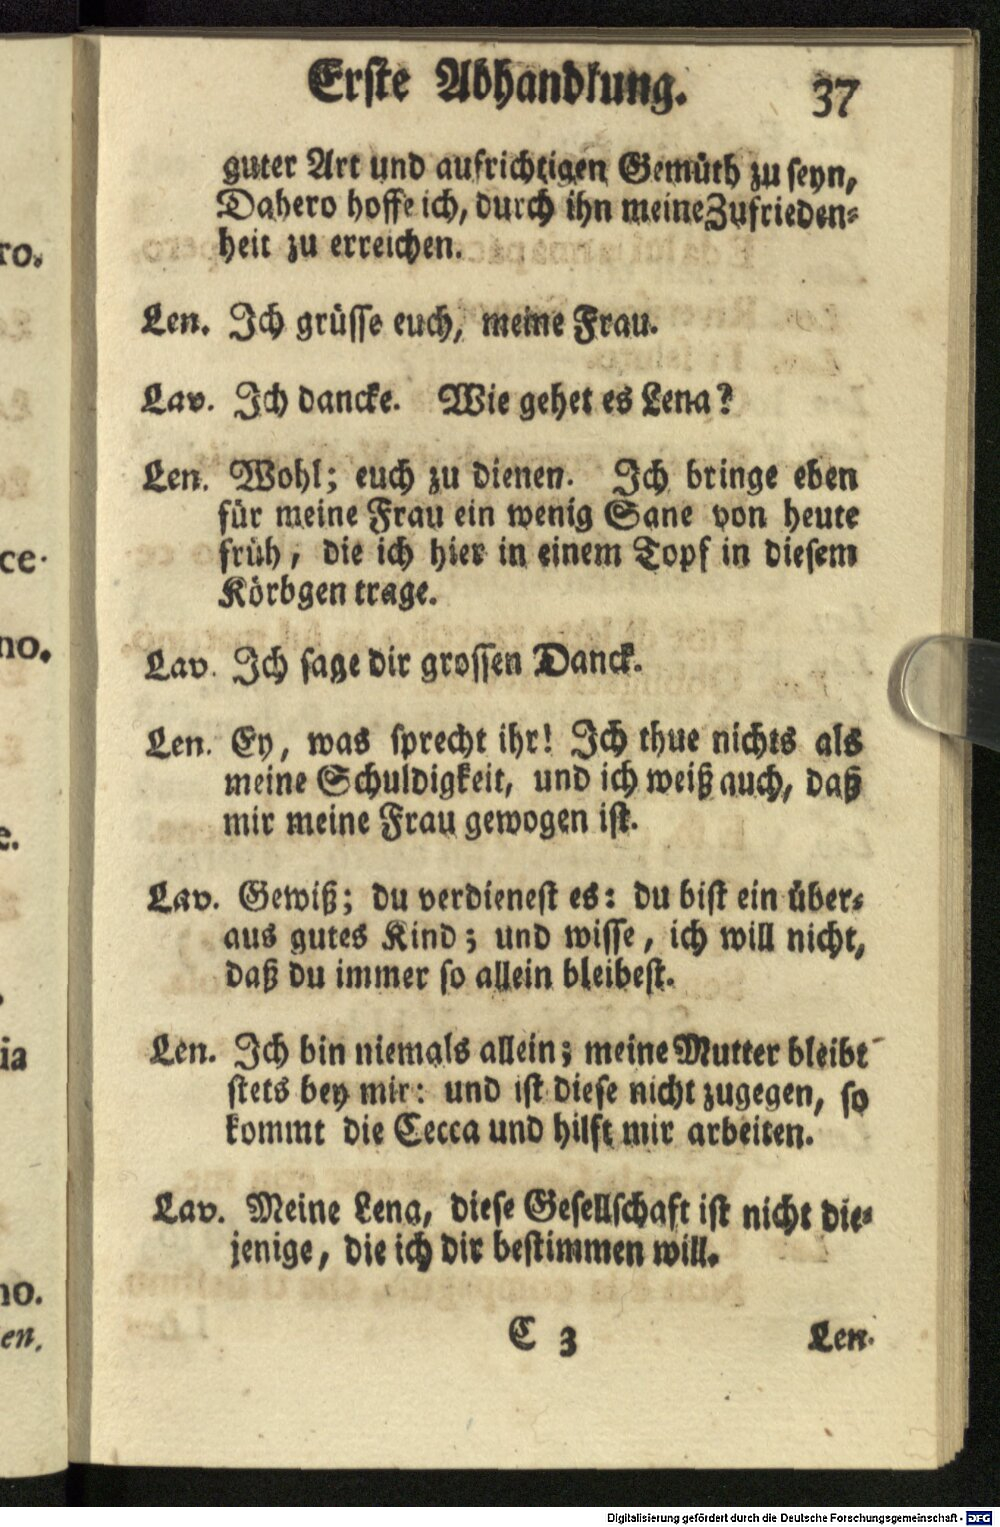 Erste Abhandlung. 37
guter Art und aufrichtigen Gemüth zu seyn,
Dahero hoffe ich, durch ihn meine Zufrieden-
heit zu erreichen.
Len. Ich grüsse euch, meine Frau.
Lav. Ich dancke. Wie gehet es Lena?
Len. Wohl; euch zu dienen. Ich bringe eben
für meine Frau ein wenig Sane von heute
früh, die ich hier in einem Topf in diesem
Körbgen trage.
Lav. Ich sage dir grossen Danck.
Len. Ey, was sprecht ihr! Ich thue nichts als
meine Schuldigkeit, und ich weiß auch, daß
mir meine Frau gewogen ist.
Lav. Gewiß; du verdienest es: du bist ein über-
aus gutes Kind; und wisse, ich will nicht,
daß du immer so allein bleibest.
Len. Ich bin niemals allein; meine Mutter bleibt
stets bey mir: und ist diese nicht zugegen, so
kommt die Cecca und hilft mir arbeiten.
Lav. Meine Lena, diese Gesellschaft ist nicht die-
jenige, die ich dir bestimmen will.
C 3 Len.
ro.
ce.
no.
e.
ia
no.
en.
Digitalisierung gefördert durch die Deutsche Forschungsgemeinschaft - DFG